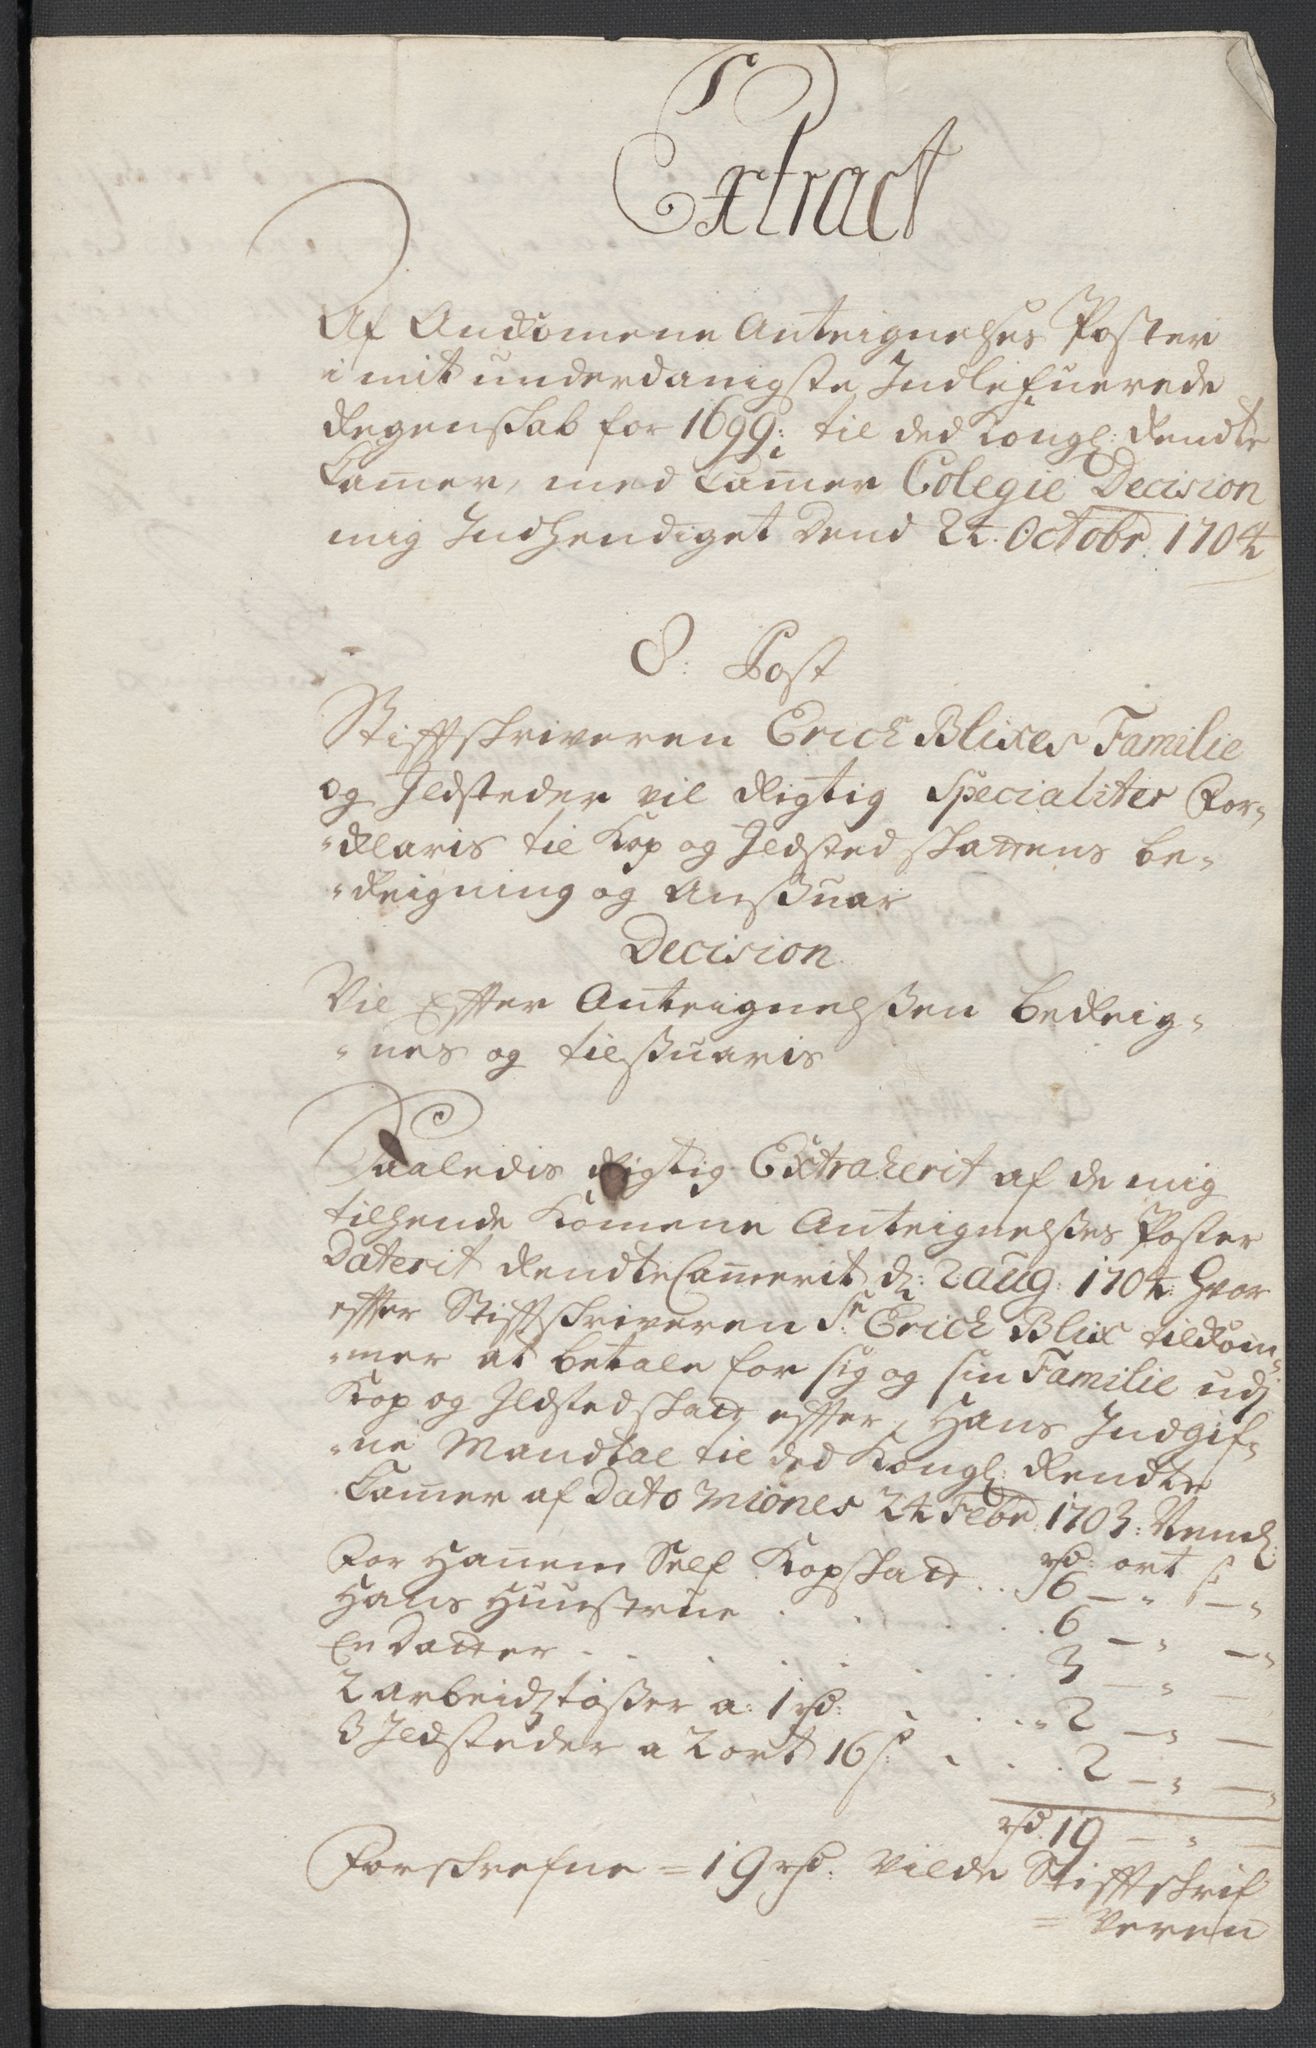 Extract
Af Ankomene Anteignelses Poster
i mit underdanigste Indlefuerede
Regenskab for 1699: til ded Kongl: Rendte
Camer, med Camer Colegie Decision
mig Indhendiget Dend 24. Octobr 1704
8: Post
Stiftskriveren Erich Blixes Familie
og Ildsteder vil Rigtig Specialiter For-
-klaris til Kop og Ildsted skattens be-
-Reigning og Ansuar
Decision
Vil Effter Anteignelsen beReig-
-nes og tilsuaris
Saaledis Rigtig Extraherit af de mig
tilhende Komene Anteignelses Poster
Daterit RendteCamerit d: 2 aug: 1704: Hvor
effter Stiftskriveren Sr: Erich Blix tilkom-
-mer at betale for sig og sin Familie udj
Kop og Ildstedskatt effter Hans Indgif-
-ne Mandtal til ded Kongl: Rendte
Camer af Dato Miønes 24 Febr 1703: Nemb:
rd: ort s
For Hanem Self Kopskatt .. 6 — " — "
Hans Huustrue . . . . . 6 — " — "
En Datter . . . . . . 3 — " —
2 arbeidztøsser a: 1 rd: . . . 2 — " —
3 Ildsteder a 2 ort 16 s: . . . 2 — " — "
rd. 19 — " —
Forskrefne = 19 rd: Vilde Stiftskrif
= Veren